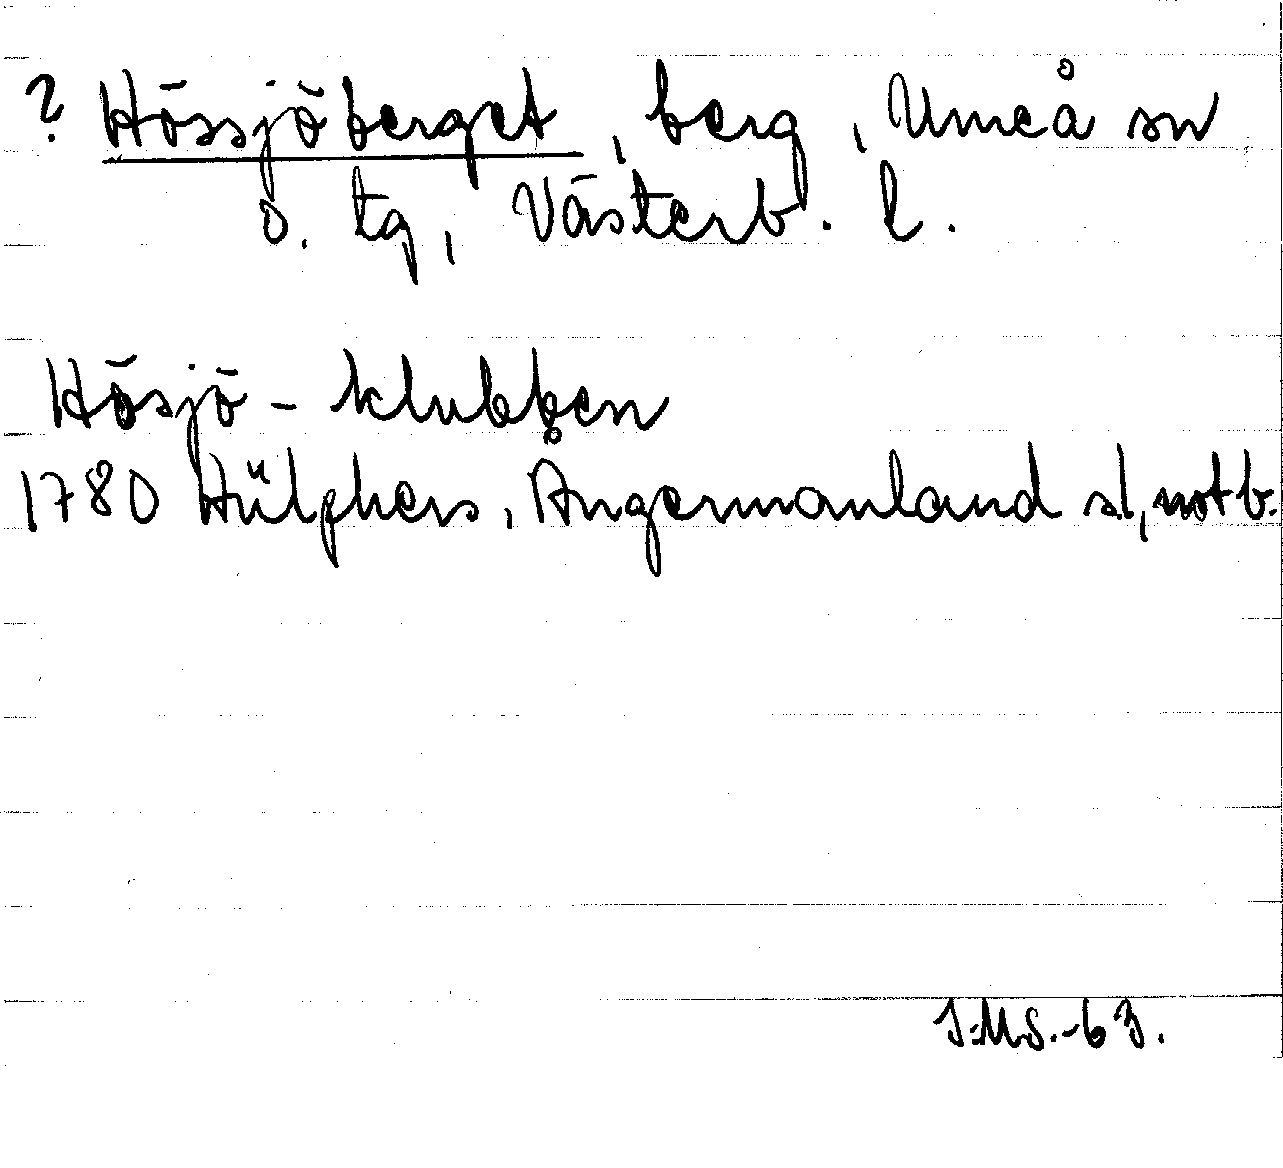 ? Hössjöberget, berg, Umeå sn
o. tg, Västerb. l.
Hösjö-klubben
1780 Hülphers, Ångermanland sl, not b.
J.M.S.-63.